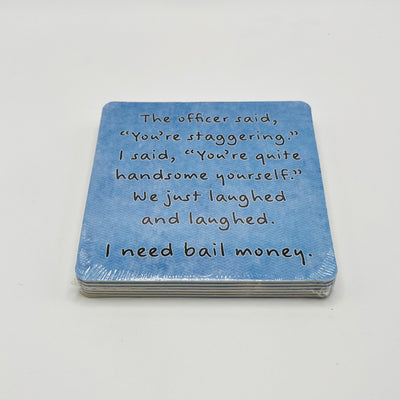 The officer said,
“You're staggering.”
I said, “You're quite
handsome yourself.”
We just laughed
and laughed.
I need bail money.